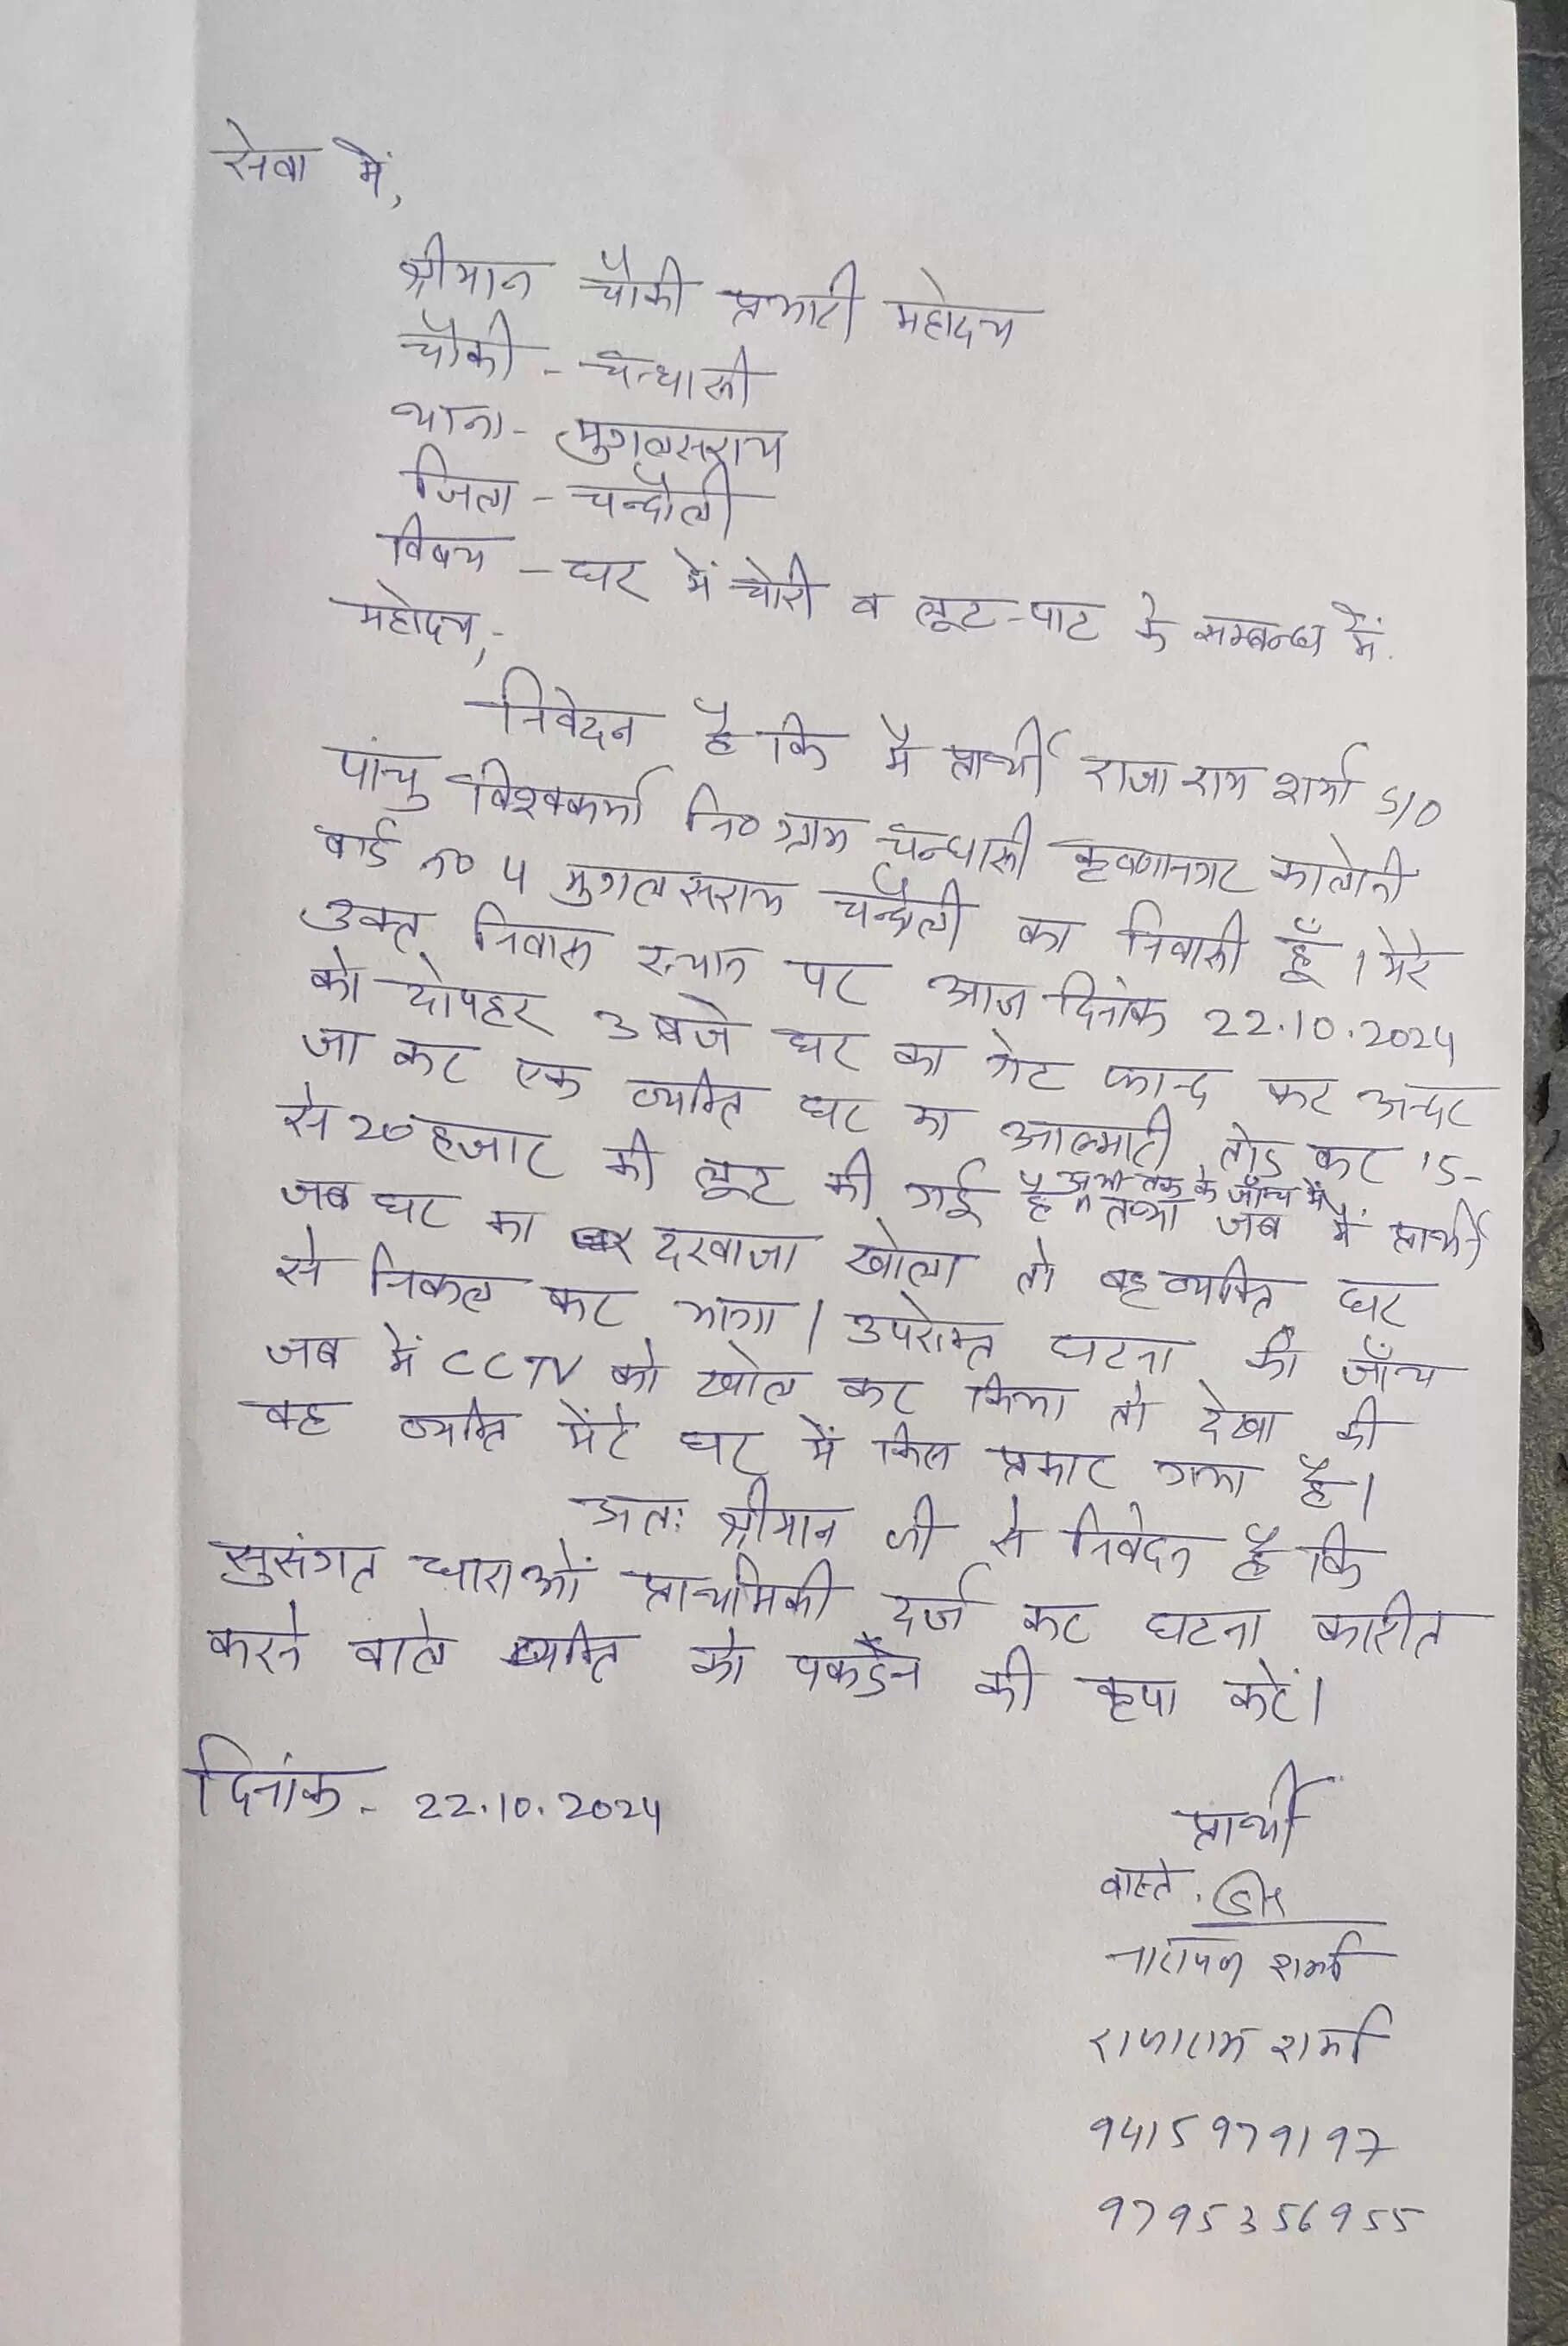 सेवा में,
श्रीमान चौकी प्रभारी महोदय
चौकी - चन्धासी
थाना - मुगलसराय
जिला - चन्दौली
विषय - घर में चोरी व लूट-पाट के सम्बन्ध में.
महोदय,
निवेदन है कि मै प्रार्थी राजा राम शर्मा S/O
पांचु विश्वकर्मा नि० ग्राम चन्धासी कृष्णानगर कालोनी
वार्ड न० 4 मुगलसराय चन्दौली का निवासी हूँ। मेरे
उक्त निवास स्थान पर आज दिनांक 22.10.2024
को दोपहर 3 बजे घर का गेट फान्द कर अन्दर
जा कर एक व्यक्ति घर का आल्मारी तोड कर 15-
से 20 हजार की लूट की गई है अभी तक के जाँच में तथा जब मैं प्रार्थी
जब घर का दरवाजा खोला तो वह व्यक्ति घर
से निकल कर भागा। उपरोक्त घटना की जाँच
जब में CCTV को खोल कर किया तो देखा की
वह व्यक्ति मेंरे घर में किस प्रकार गया है।
अतः श्रीमान जी से निवेदन है कि
सुसंगत धाराओं प्राथमिकी दर्ज कर घटना कारीत
करने वाले व्यक्ति को पकडेन की कृपा करें।
दिनांक - 22.10.2024
प्रार्थी
वास्ते.
नारायण शर्मा
राजाराम शर्मा
9415979197
9795356955